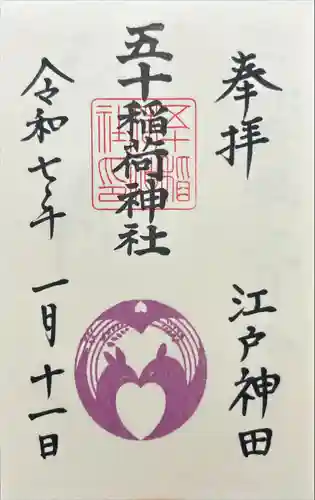 奉拝
江戸神田
五十稲荷神社
令和七年
一月十一日